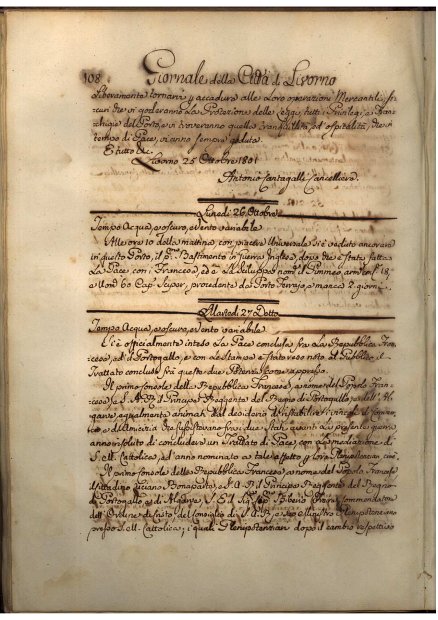 108. Giornale della Città di Livorno
Liberamente tornarvi per accudire alle Loro operazioni Mercantili, si-
curi che vi goderanno La Protezione delle Leggi, tutti i Privilegi, e Fran-
chigie del Porto, e vi troveranno quella tranquillità, ed ospitalità, che in
tempo di Pace, vi anno sempre goduta.
E tutto &c.
Livorno 25 Ottobre 1801
Antonio Cantagalli Cancelliere
Lunedì 26 Ottobre
Tempo Acqua, e oscuro, e Vento variabile
Alle ore 10 della mattina con piacere Universale si è veduto ancorare
in questo Porto, il Bastimento da Guerra Inglese, dopo che è stata fatta
La Pace con i Francesi, ed è
e Uom. 60 Cap. procedente da Porto Ferrajo, e manca 2 giorni.
Martedì 27 Detto
Tempo Acqua, e oscuro, e Vento variabile
Si è officialmente inteso La Pace conclusa fra La Repubblica Fran-
cese, ed il Portogallo, e con Le stampe è stato reso noto al Pubblico il
Trattato concluso frà queste due Potenze come appresso.
Il primo Console della Repubblica Francese, a nome del Popolo Fran-
cese, e S. A. R. il Principe Reggente del Regno di Portogallo, e dell'Al-
garve, egualmente animati dal desiderio di ristabilire i vincoli di Commer-
cio, e di Amicizia che sussistevano fra i due Stati, avanti La presente guerra,
anno risoluto di concludere un Trattato di Pace, con La mediazione di
S. M. Cattolica, ed anno nominato a tale effetto per loro Plenipotenziari, cioè.
Il primo Console della Repubblica Francese, a nome del Popolo Francese
il Cittadino Luciano Bonaparte, e S. A. R. il Principe Reggente del Regno
di Portogallo, e di Algarve, S. E. il Sig. Cipriano Ribeiro Freire, Commendatore
dell'Ordine di Cristo, del Consiglio di S. A. R., e suo Ministro Plenipotenziario
presso S. M. Cattolica; i quali Plenipotenziari dopo il cambio rispettivo